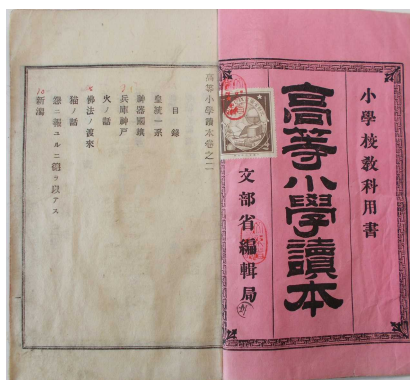 小學校教科用書
高等小學讀本
文部省編輯局
高等小學讀本卷之二
目錄
皇統一系
神器國旗
兵庫神戸
火ノ話
佛法ノ渡來
猫ノ話
怨ニ報ユルニ德ヲ以テス
新潟